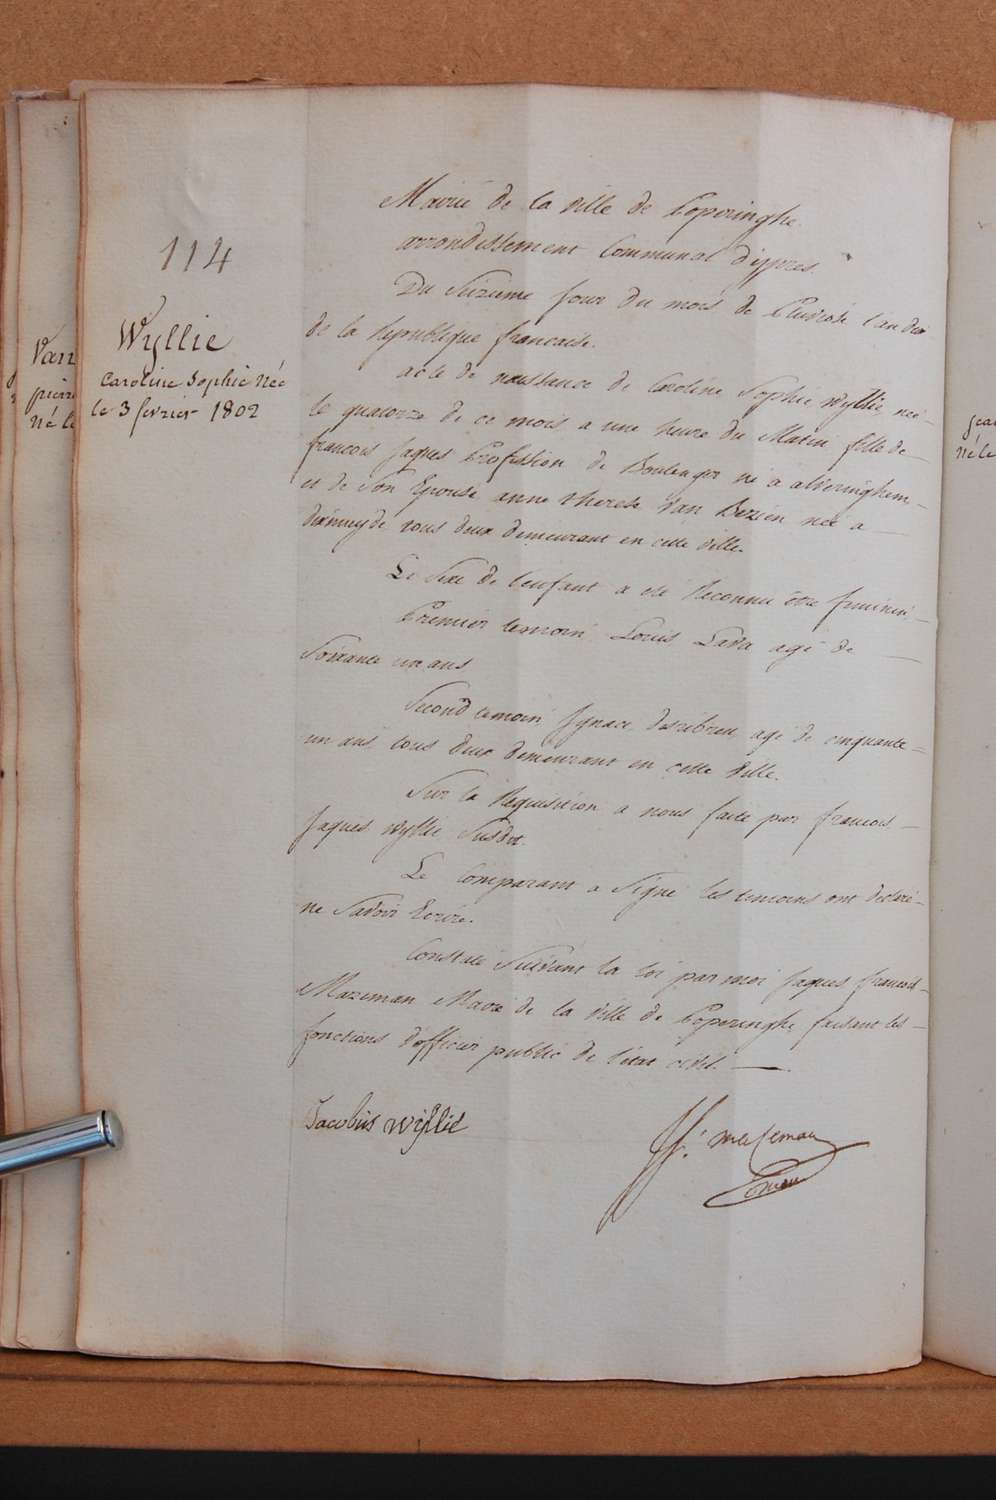 114
Wyllie
Caroline Sophie Née
le 3 fevrier 1802
Mairie de la Ville de Poperinghe.
arrondissement Communal d'ypres.
Du Seizieme jour du mois de Pluviose l'an dix
de la Republique francaise.
acte de naissance de Caroline Sophie Wyllie neé
le quatorze de ce mois a une heure du Matin fille de
francois Jaques Profession de Boulenger né a alveringhem,
et de Son Epouse anne therese Van Bezien neé a
dixmuyde tous deux demeurant en cette Ville.
Le Sexe de l'enfant a eté Reconnu être feminin,
Premier temoin Louis Lava agé de
Soixante un ans
Second temoin Ignace agé de cinquante
un ans, tous deux demeurant en cette Ville.
Sur la Requisition a nous faite par francois
Jaques Wyllie Susdit.
Le Comparant a Signé les temoins ont declaré
ne Savoir Ecrire.
Constaté Suivant la loi par moi Jaques francois
Mazeman Maire de la Ville de Poperinghe faisant les
fonctions d'officier public de l'état civil.
Jacobus Wyllie
J f. mazeman
Van
pierre
Né le
Né le